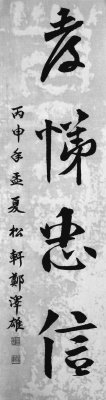 孝悌忠信
丙申年孟夏松軒鄭澤雄